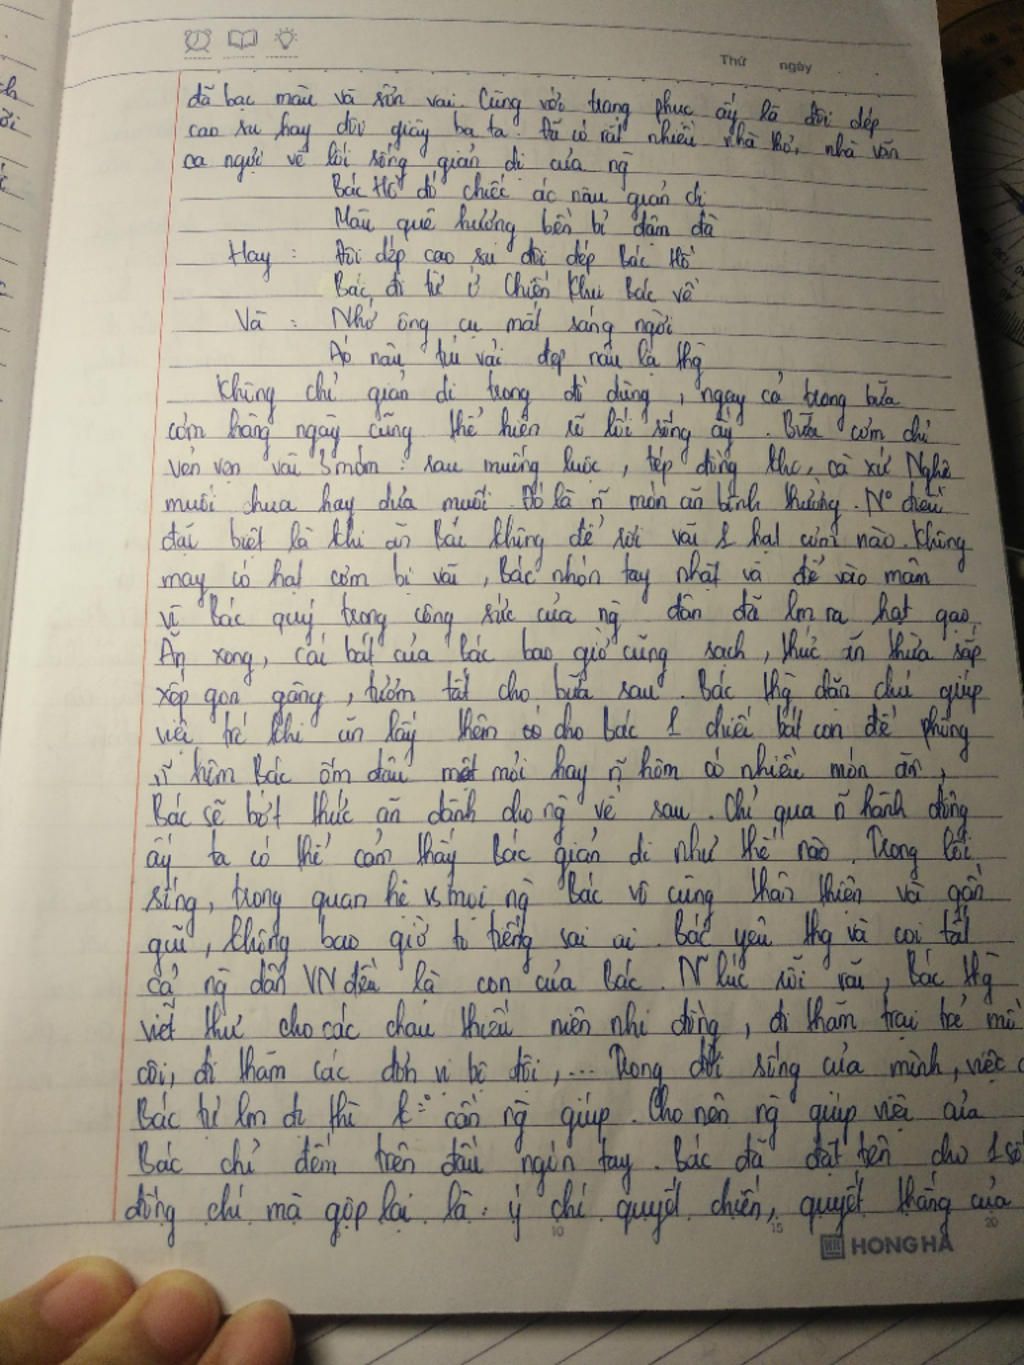 Thứ ngày
đã bạc màu và sờn vai. Cùng với trang phục ấy là đôi dép
cao su hay đôi giày ba ta. Đã có rất nhiều nhà thơ, nhà văn
ca ngợi về lối sống giản dị của ng
Bác Hồ đó chiếc áo nâu giản dị
Màu quê hương bền bỉ đậm đà
Hay : Đôi dép cao su đôi dép Bác Hồ
Bác đi từ ở chiến khu Bác về
Và : Nhớ ông cụ mắt sáng ngời
Áo nâu túi vải đẹp nâu lạ thg
Không chỉ giản dị trong đồ dùng, ngay cả trong bữa
cơm hàng ngày cũng thể hiện rõ lối sống ấy. Bữa cơm chỉ
vẻn vẹn vài 3 món : rau muống luộc, tép đồng kho, cà xứ Nghệ
muối chua hay dưa muối. Đó là n~ món ăn bình thường. N° điều
đặc biệt là khi ăn Bác không để rơi vãi 1 hạt cơm nào. Không
may có hạt cơm bị vãi, Bác nhón tay nhặt và để vào mâm
vì Bác quý trọng công sức của ng dân đã lm ra hạt gạo.
Ăn xong, cái bát của Bác bao giờ cũng sạch, thức ăn thừa sắp
xếp gọn gàng, tươm tất cho bữa sau. Bác thg dặn chú giúp
việc trc khi ăn lấy thêm cho Bác 1 chiếc bát con để phòng
n~ hôm Bác ốm đau mệt mỏi hay n~ hôm có nhiều món ăn,
Bác sẽ bớt thức ăn dành cho ng về sau. Chỉ qua n~ hành động
ấy ta có thể cảm thấy Bác giản dị như thế nào. Trong lối
sống, trong quan hệ vs mọi ng Bác vô cùng thân thiện và gần
gũi, không bao giờ to tiếng sai ai. Bác yêu thg và coi tất
cả ng dân VN đều là con của Bác. N~ lúc rỗi rãi, Bác thg
viết thư cho các cháu thiếu niên nhi đồng, đi thăm trại trẻ mồ
côi, đi thăm các đơn vị bộ đội,... Trong đời sống của mình, việc
Bác tự lm đc thì k° cần ng giúp. Cho nên ng giúp việc của
Bác chỉ đếm trên đầu ngón tay. Bác đã đặt tên cho 1 số
đồng chí mà gộp lại là : ý chí quyết chiến, quyết thắng của
10 15 20
HONG HA